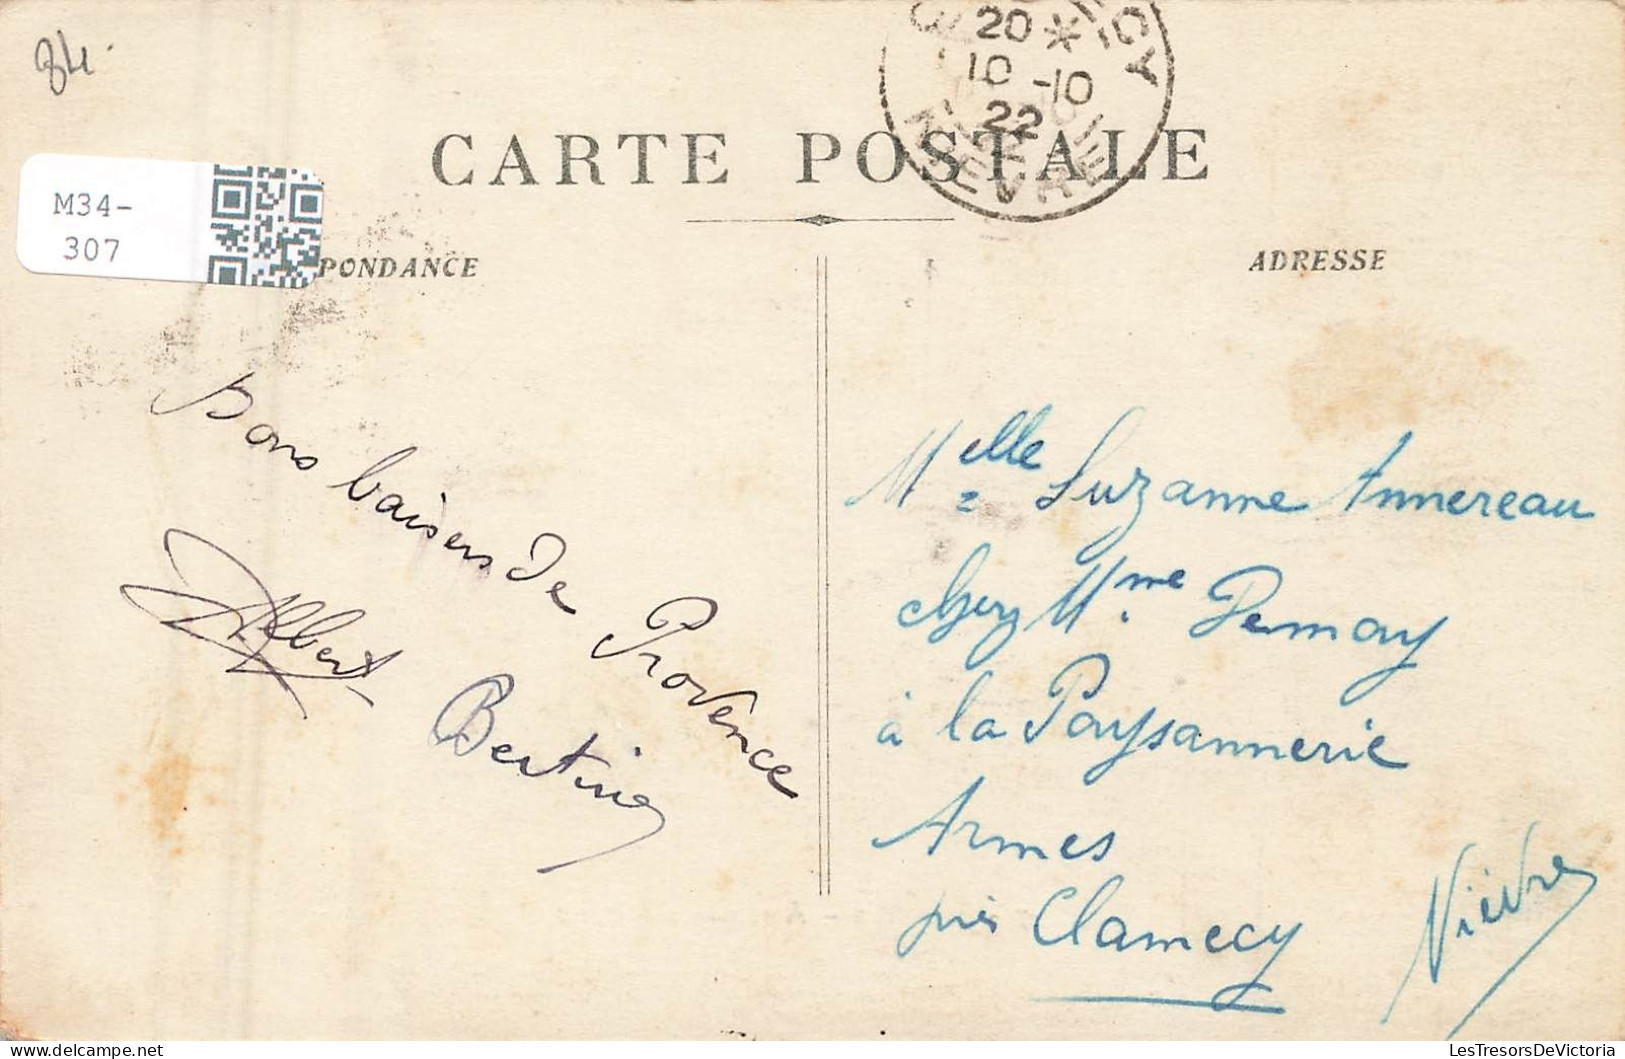 84.
20 *
10-10
22
NIEVRE
CARTE POSTALE
M34-
307
PONDANCE
ADRESSE
Bons baisers de Provence
Albert
Melle Suzanne Annereau
chez Mme Demay
à la Paysannerie
Armes
près Clamecy
Nièvre
LesTresorsDeVictoria